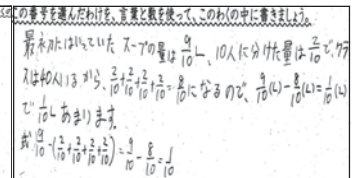 この番号を選んだわけを、言葉と数を使って、このわくの中に書きましょう。
最初にはいっていたスープの量は9/10L、10人に分けた量は2/10で、クラ
スは40人いるから、2/10+2/10+2/10+2/10=8/10になるので、9/10(L)-8/10(L)=1/10(L)
で1/10Lあまります。
式 9/10-(2/10+2/10+2/10+2/10)=9/10-8/10=1/10